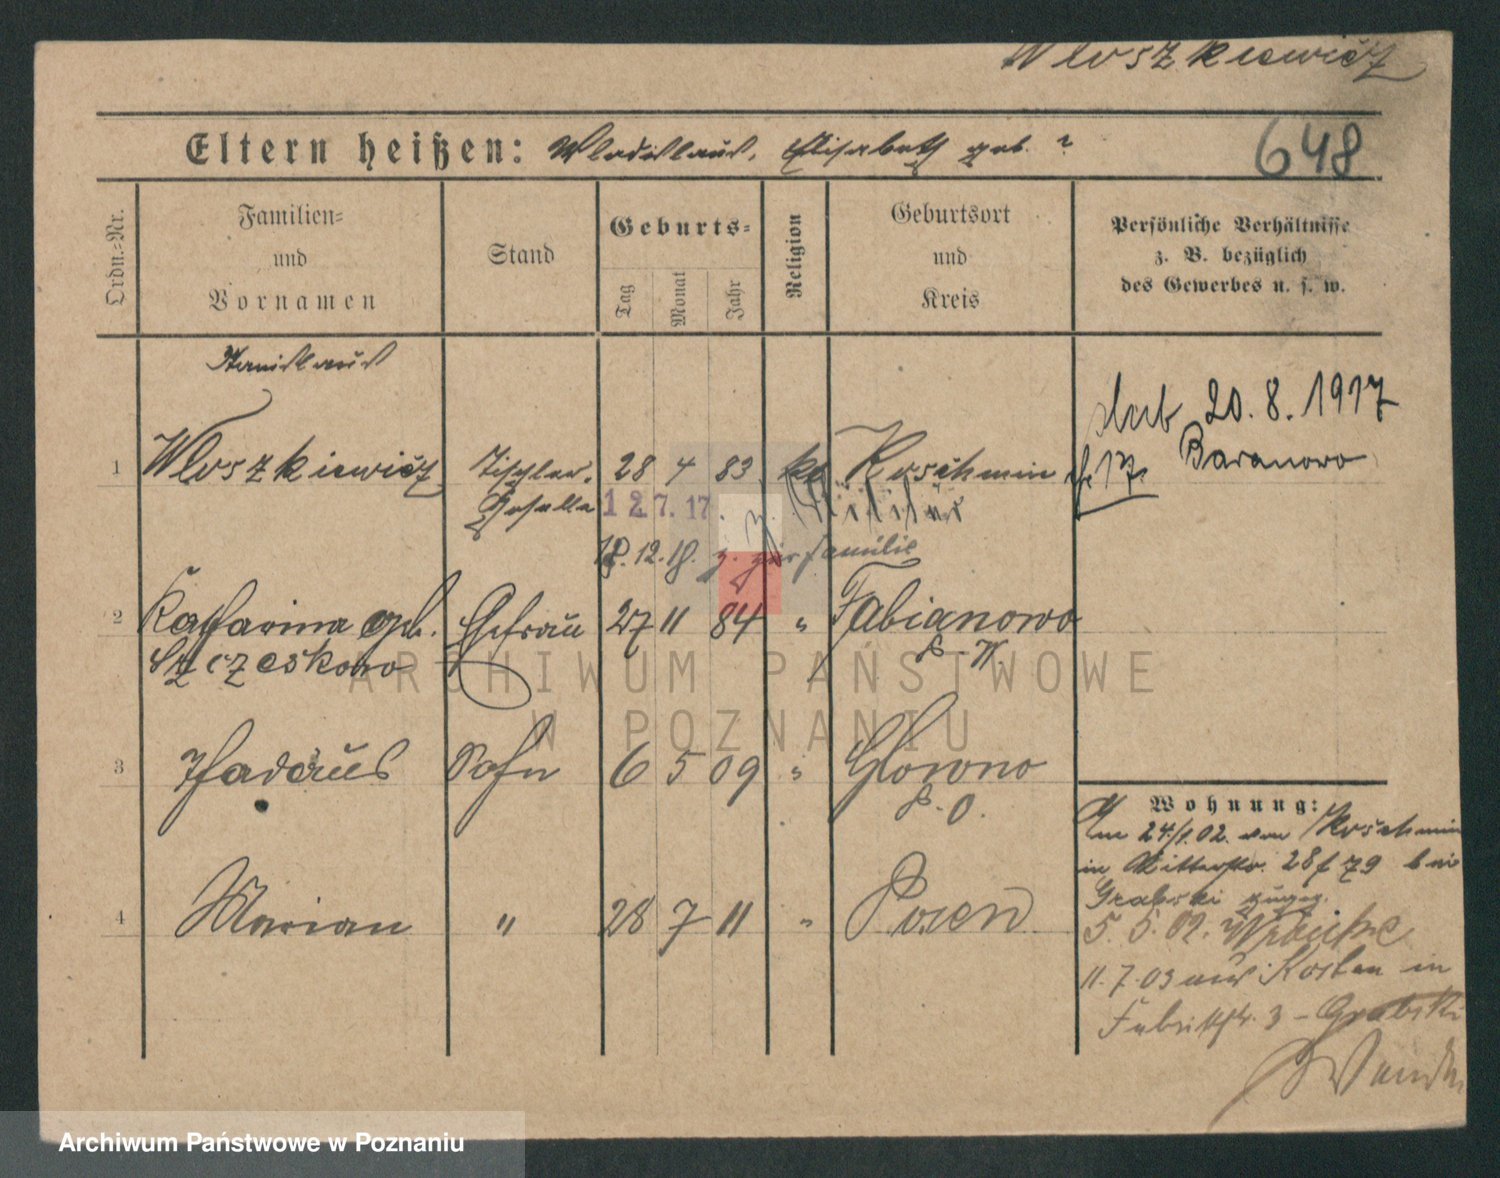 Wloszkiewicz
Eltern heißen: Wladislaus, Elisabeth geb. ?
648
Ordn.-Nr.
Familien-
und
Vornamen
Stand
Geburts-
Tag
Monat
Jahr
Religion
Geburtsort
und
Kreis
Persönliche Verhältnisse
z. B. bezüglich
des Gewerbes u. s. w.
Stanislaus
1 Wloszkiewicz Tischler- 28 4 83 Koschmin
Geselle 12 7. 17 z. Militär
18. 12. 18. z. zur Familie
20. 8. 1917
Baranowo
2 Katharina geb. Ehefrau 27 11 84 " Fabianowo
Szczeskowo P. W.
3 Thadäus Sohn 6 5 09 " Glowno
P. O.
4 Marian " 28 7 11 " Posen
Wohnung:
Am 24/1.02. von Koschmin
in Ritterstr. 28 f 79 bei
Grabski zugez.
5. 5. 02.
11. 7. 03 aus Kosten in
Fabrikstr. 3 - Grabski
ARCHIWUM PAŃSTWOWE
W POZNANIU
Archiwum Państwowe w Poznaniu